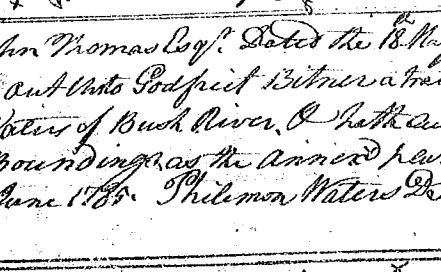 hn Thomas Esqr. Dated the 18th May
out Unto Godfreit Bitner a tra
Waters of Bush River. & hath
Boundings as the annex'd
June 1785. Philemon Waters De